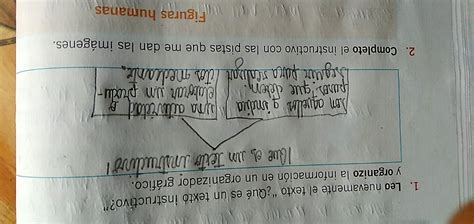 1. Leo nuevamente el texto "¿Qué es un texto instructivo?"
y organizo la información en un organizador gráfico.
¿Que es un texto instructivo?
son aquellos q envia
pasos que deben
seguir para realizar
una actividad
elaborar un produ-
tos mediante.
2. Completo el instructivo con las pistas que me dan las imágenes.
Figuras humanas